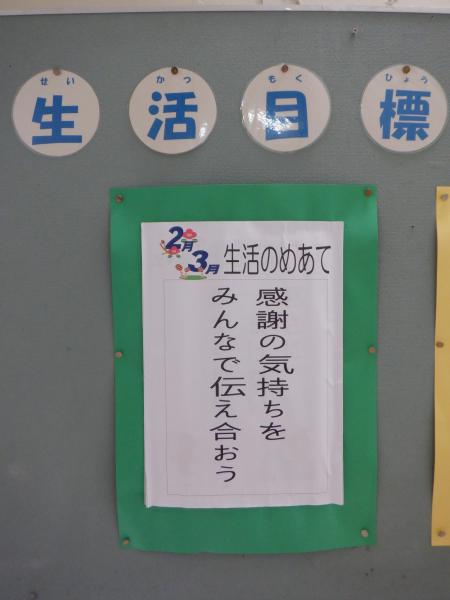 せい かつ もく ひょう
生活目標
2月3月 生活のめあて
感謝の気持ちを
みんなで伝え合おう